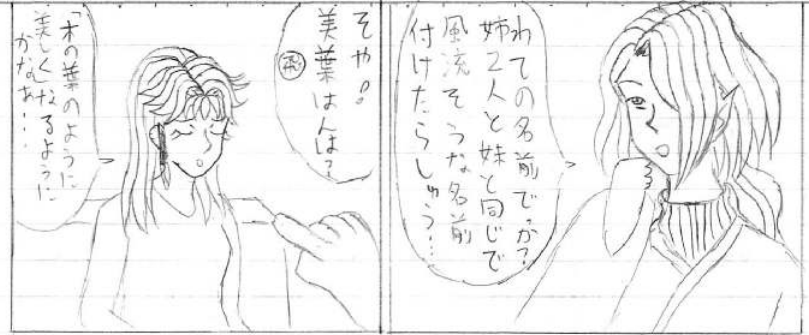 わての名前でっか?
姉2人と妹と同じで
風流そうな名前
付けたらしゅう…
そや!
美葉はんは?
「木の葉のように
美しくなるように
かなぁ…